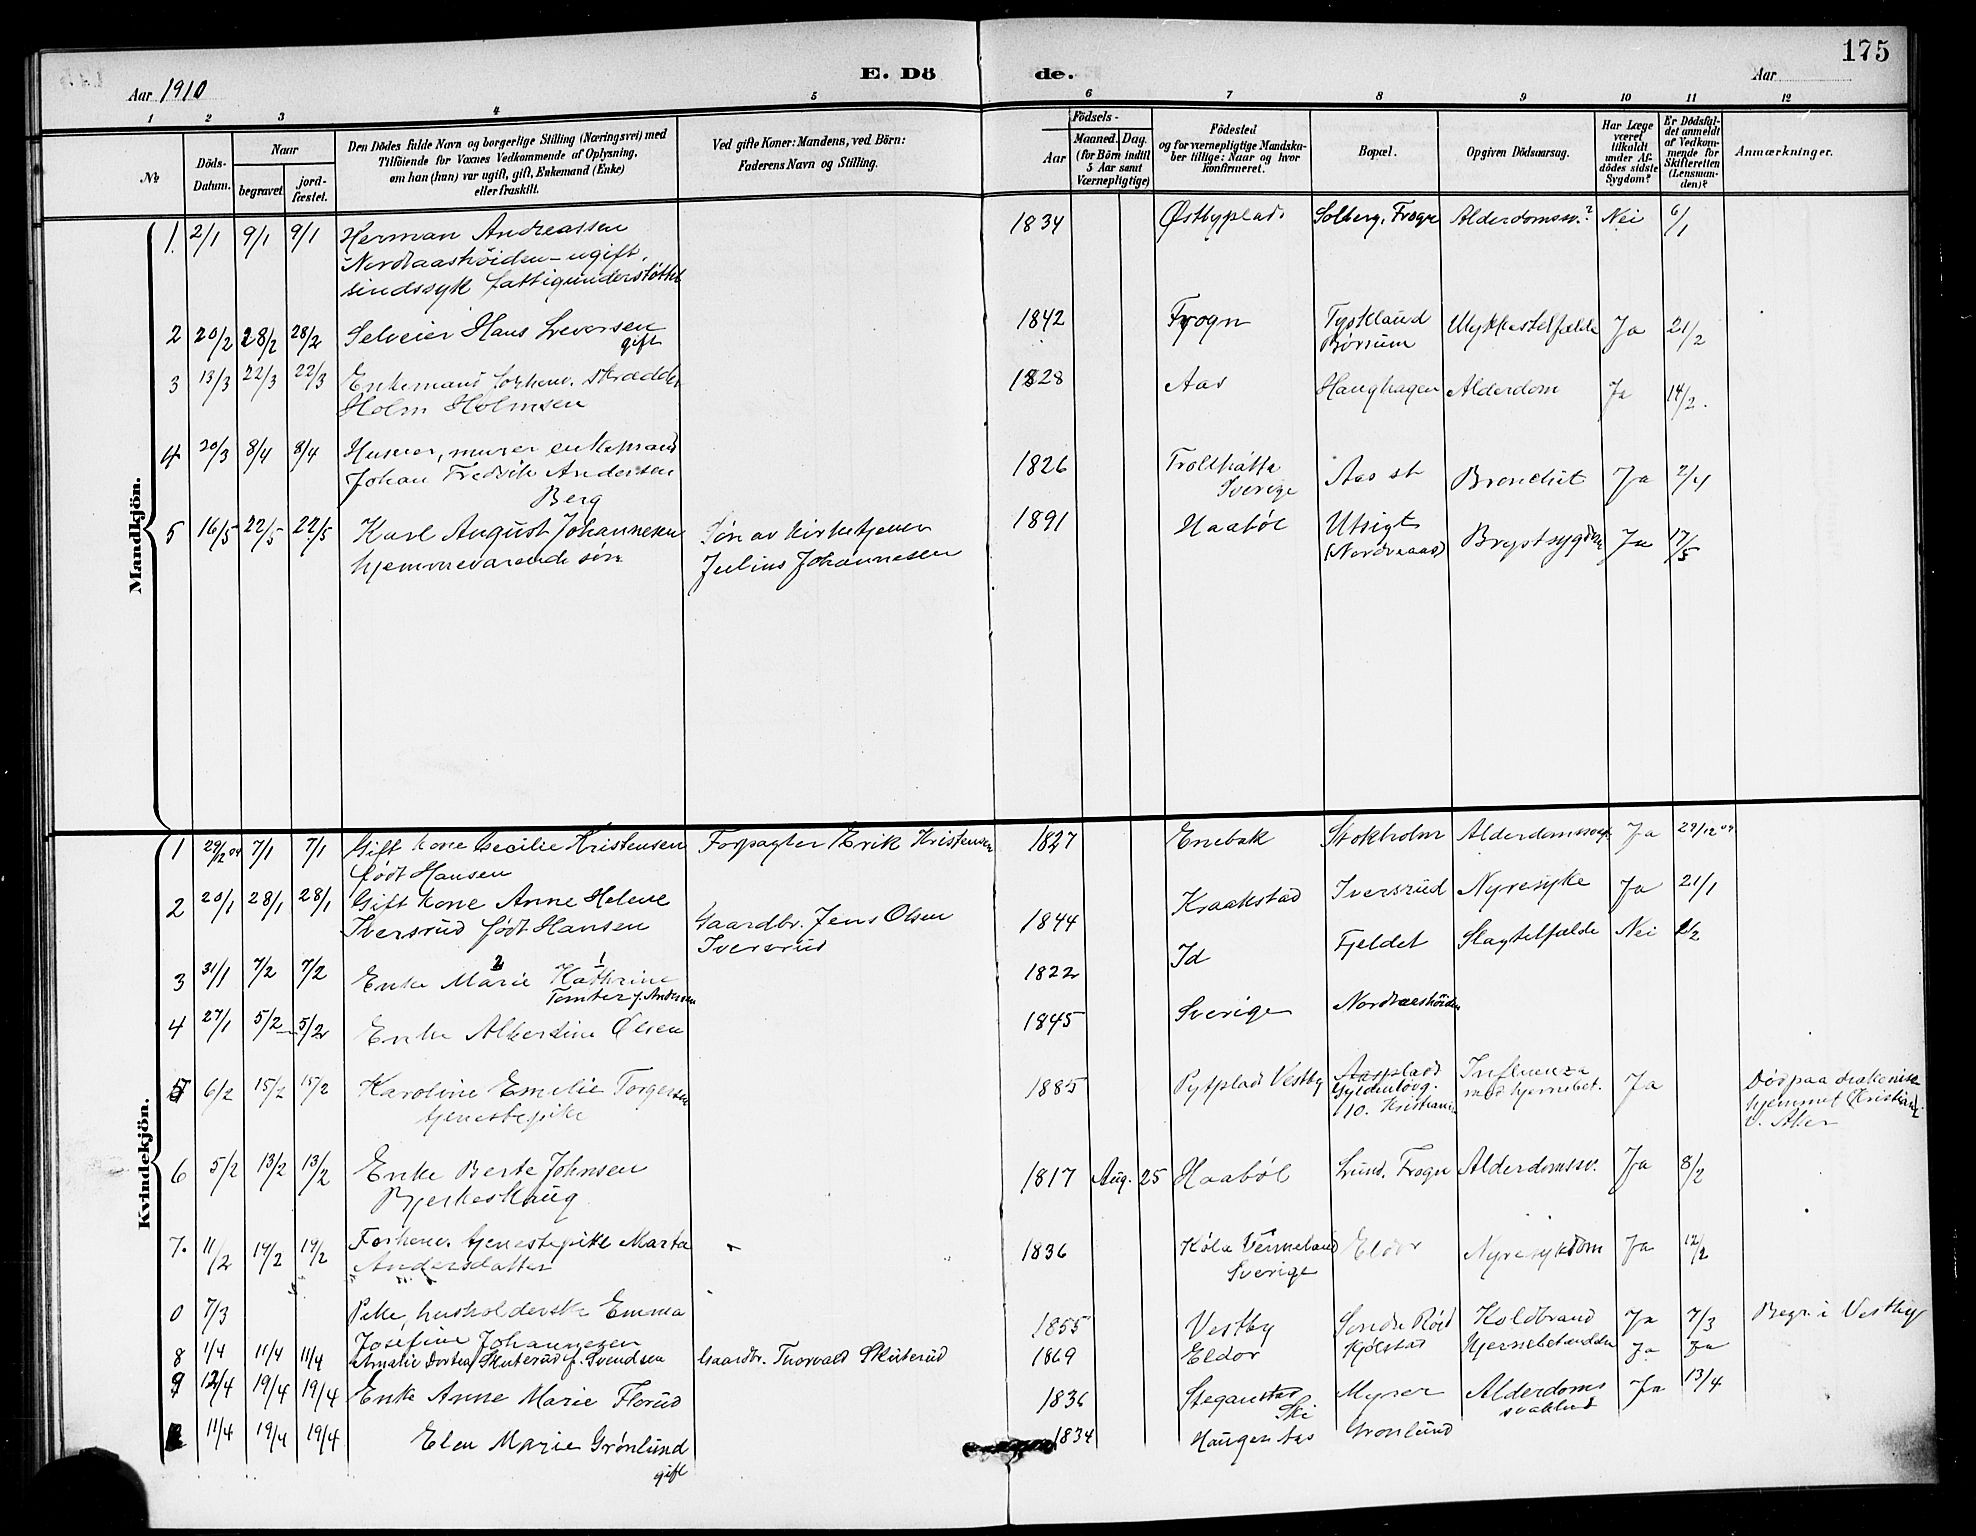 175
E. Dö de.
Aar 1910
Aar
1 2 3 4 5 6 7 8 9 10 11 12
№
Döds-Datum.
Naar
begravet.
jord-fæstet.
Den Dödes fulde Navn og borgerlige Stilling (Næringsvei) med
Tilföiende for Voxnes Vedkommende af Oplysning,
om han (hun) var ugift, gift, Enkemand (Enke)
eller fraskilt.
Ved gifte Koner: Mandens, ved Börn:
Faderens Navn og Stilling.
Födsels-
Aar
Maaned. Dag.
(for Börn indtil
5 Aar samt
Værnepligtige)
Födested
og for værnepligtige Mandska-
ber tillige: Naar og hvor
konfirmeret.
Bopæl.
Opgiven Dödsaarsag.
Har Læge
været
tilkaldt
under Af-
dödes sidste
Sygdom?
Er Dödsfal-
det anmeldt
af Vedkom-
mende for
Skifteretten
(Lensman-
den)?
Anmærkninger.
Mandkjön.
1. 2/1 9/1 9/1 Herman Andreassen 1834 Østbyplads Solberg, Frogn Alderdomssv.? Nei 6/1
Nordraashöiden - ugift,
sindssyk fattigunderstøttet
2 20/2 28/2 28/2 Selveier Hans Siversen 1842 Frogn Tyskland Ulykkestilfælde Ja 21/2
gift
3 13/3 22/3 22/3 Enkemand forhenv. skrædder 1828 Aas Haughagen Alderdom Ja 14/2.
Holm Holmsen
4 20/3 8/4 8/4 Huseier, murer enkemand 1826 Trollhätta Aas st Bronchit Ja 2/4
Johan Fredrik Andersen Sverige
Berg
5 16/5 22/5 22/5 Karl August Johannesen Søn av kirketjener 1891 Haabøl Utsigt Brystsygdom Ja 17/5
hjemmeværende søn Julius Johannesen (Nordraas)
Kvindekjön.
1 29/12 09 7/1 7/1 Gift kone Cecilie Kristensen Forpagter Erik Kristensen 1827 Enebak Stokholm Alderdomssvagh. Ja 29/12 09
født Hansen
2 20/1 28/1 28/1 Gift kone Anne Helene Gaardbr. Jens Olsen 1844 Kraakstad Iversrud Nyresyke Ja 21/1
Iversrud født Hansen Iversrud
3 31/1 7/2 7/2 Enke Marie 2 Kathrine 1 1822 Id Fjeldet Slagtilfælde Nei 2/2
Tomter f. Andersen
4 27/1 5/2 5/2 Enke Albertine Olsen 1845 Sverige Nordraashöiden
5 6/2 15/2 15/2 Karoline Emilie Torgersen 1885 Pytplad Vestby Aasplads Influenza Ja Død paa diakonisse
tjenestepike Gyldenløvg. med hjernebet. hjemmet Kristiania
10. Kristiania V. Aker
6 5/2 13/2 13/2 Enke Berte Johnsen 1817 Aug. 25 Haabøl Lund, Frogn Alderdomssv. Ja 8/2
Bjerkeskaug
7. 11/2 19/2 19/2 Forhenv. tjenestepike Marta 1836 Köla Vermeland Eldor Nyresykdom Ja 12/2
Andersdatter Sverige
0 7/3 Pike, husholderske Emma 1855 Vestby Søndre Røed Koldbrand Ja 7/3 Begr. i Vestby
Josefine Johannesen
8 1/4 11/4 11/4 Amalie Dortea Skuterud f. Svendsen Gaardbr. Thorvald Skuterud 1869 Eldor Kjølstad Hjernebetændelse Ja Ja
9 12/4 19/4 19/4 Enke Anne Marie Florud 1836 Steganstad Myrer Alderdoms Ja 13/4
Ski svakhed
11/4 19/4 19/4 Elen Marie Grønlund 1834 Haugen Aas Grønlund
gift